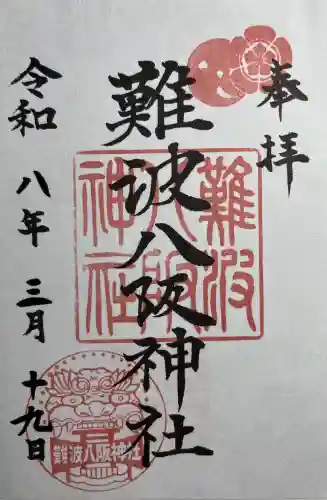 奉拝
難波八阪神社
難波
八阪
神社
令和八年三月十九日
難波八阪神社